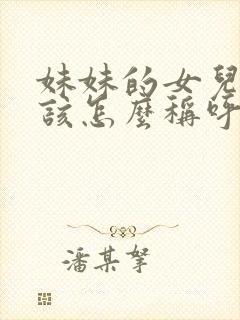 妹妹的女兒
該怎麼稱呼
潘某拏